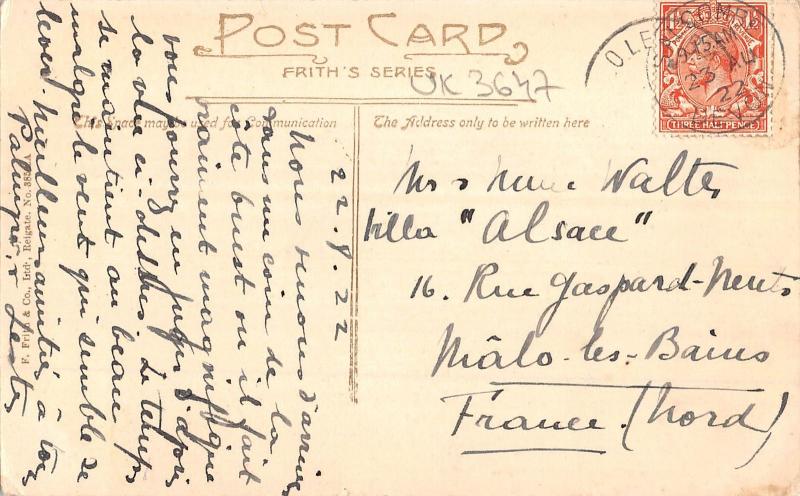 POST CARD
FRITH'S SERIES
UK 3647
This Space may be used for Communication
The Address only to be written here
THREE HALFPENCE
8.15 AM
23 AU
22
DEVON
22.8.22
Nous venons d'arriver
dans un coin de la
côte ouest où il fait
vraiment magnifique
vous pouvez en juger d'après
la vue ci-dessus. Le temps
se maintient au beau
malgré le vent qui semble se
lever. Meilleures amitiés à tous
Mr & Mme Walter
Villa "Alsace"
16. Rue Gaspard-Neuts
Malo-les-Bains
France (Nord)
F. Frith & Co., Ltd., Reigate. No.